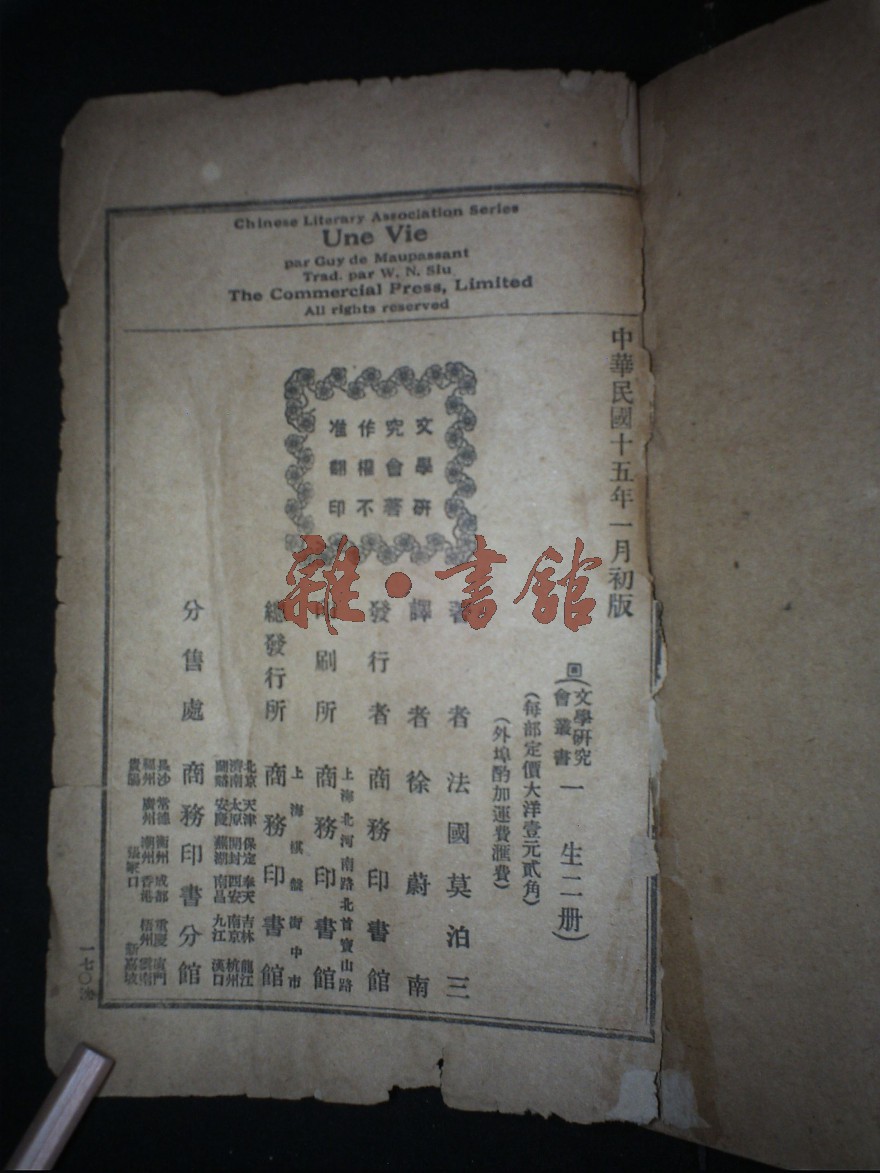 Chinese Literary Association Series
Une Vie
par Guy de Maupassant
Trad. par W. N. Siu
The Commercial Press, Limited
All rights reserved
中華民國十五年一月初版
文學研究會叢書
一生二册
(每部定價大洋壹元貳角)
(外埠酌加運費滙費)
著者 法國莫泊三
譯者 徐蔚南
發行者 商務印書館
上海北河南路北首寶山路
印刷所 商務印書館
上海棋盤街中市
總發行所 商務印書館
分售處 商務印書分館
北京 天津 保定 奉天 吉林 龍江
濟南 太原 開封 西安 南京 杭州
蘭谿 安慶 蕪湖 南昌 九江 漢口
長沙 常德 衡州 成都 重慶 廈門
福州 廣州 潮州 香港 梧州 雲南
貴陽 張家口 新嘉坡
文學研
究會著
作權不
准翻印
雜·書館